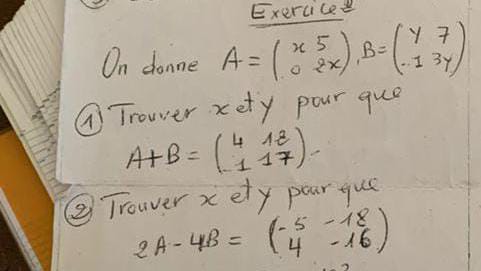 Exercice 2
On donne A = ( x 5 ; 0 2x ), B = ( y 7 ; -1 3y )
① Trouver x et y pour que
A+B = ( 4 18 ; -1 17 ).
② Trouver x et y pour que
2A - 4B = ( -5 -18 ; 4 -16 )